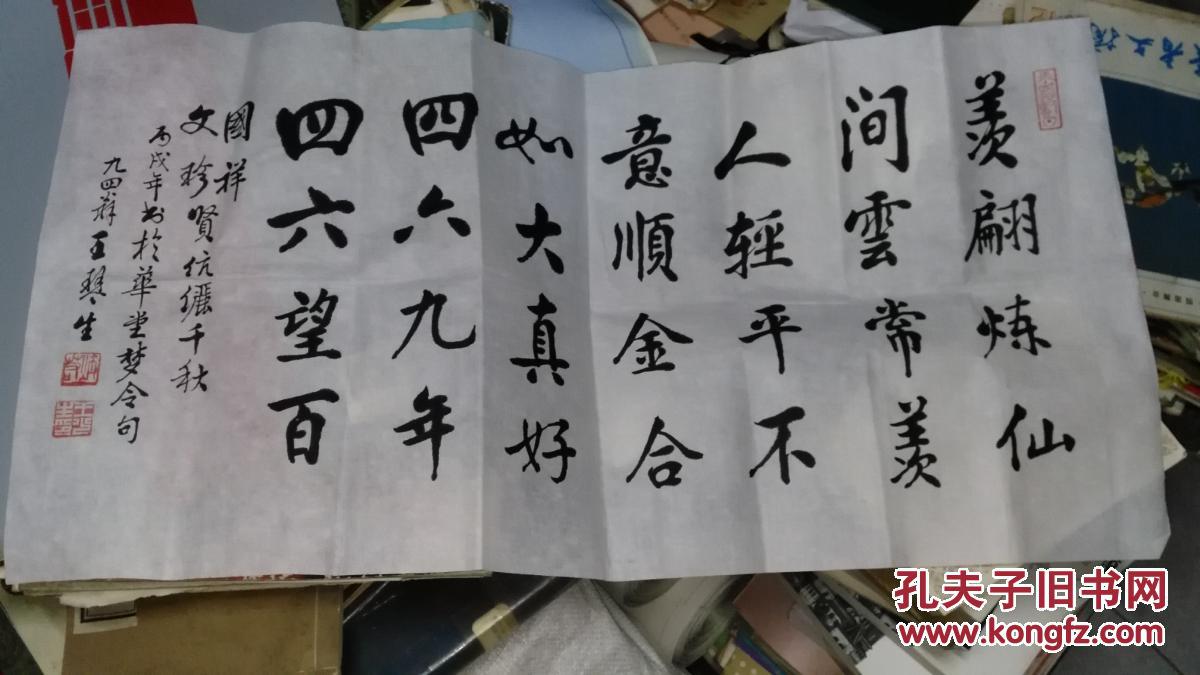 羨翩炼仙
间雲常羨
人輕平不
意順金合
如大真好
四六九年
四六望百
國祥
文珍賢伉儷千秋
丙戌年書於華堂梦令句
九四辭王琴生
孔夫子旧书网
www.kongfz.com